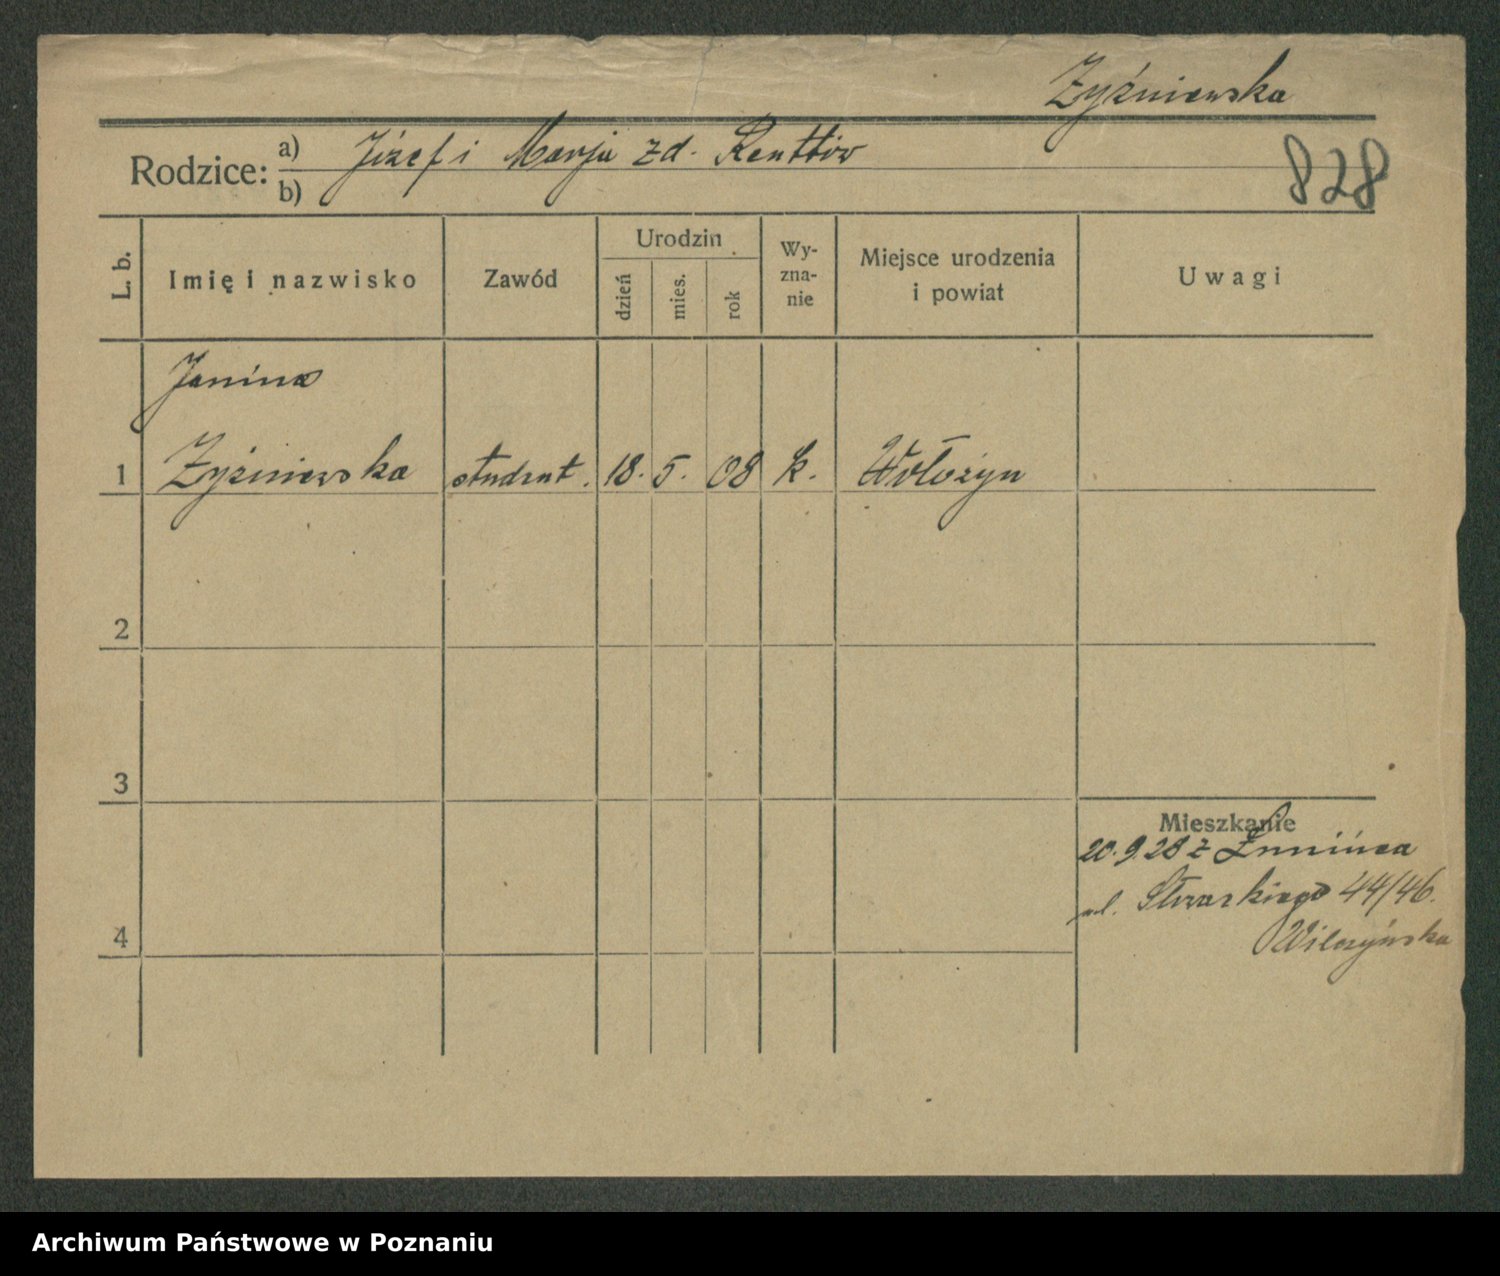 Zyźniewska
Rodzice: a) Józef i Marja zd. Renttów
b)
828
L. b.
Imię i nazwisko
Zawód
Urodzin
dzień
mies.
rok
Wy-
zna-
nie
Miejsce urodzenia
i powiat
Uwagi
Janina
1 Zyźniewska student. 18. 5. 08 k. Wołożyn
2
3
Mieszkanie
20.9.28 z
ul. 44/46.
4
Wilczyńska
Archiwum Państwowe w Poznaniu